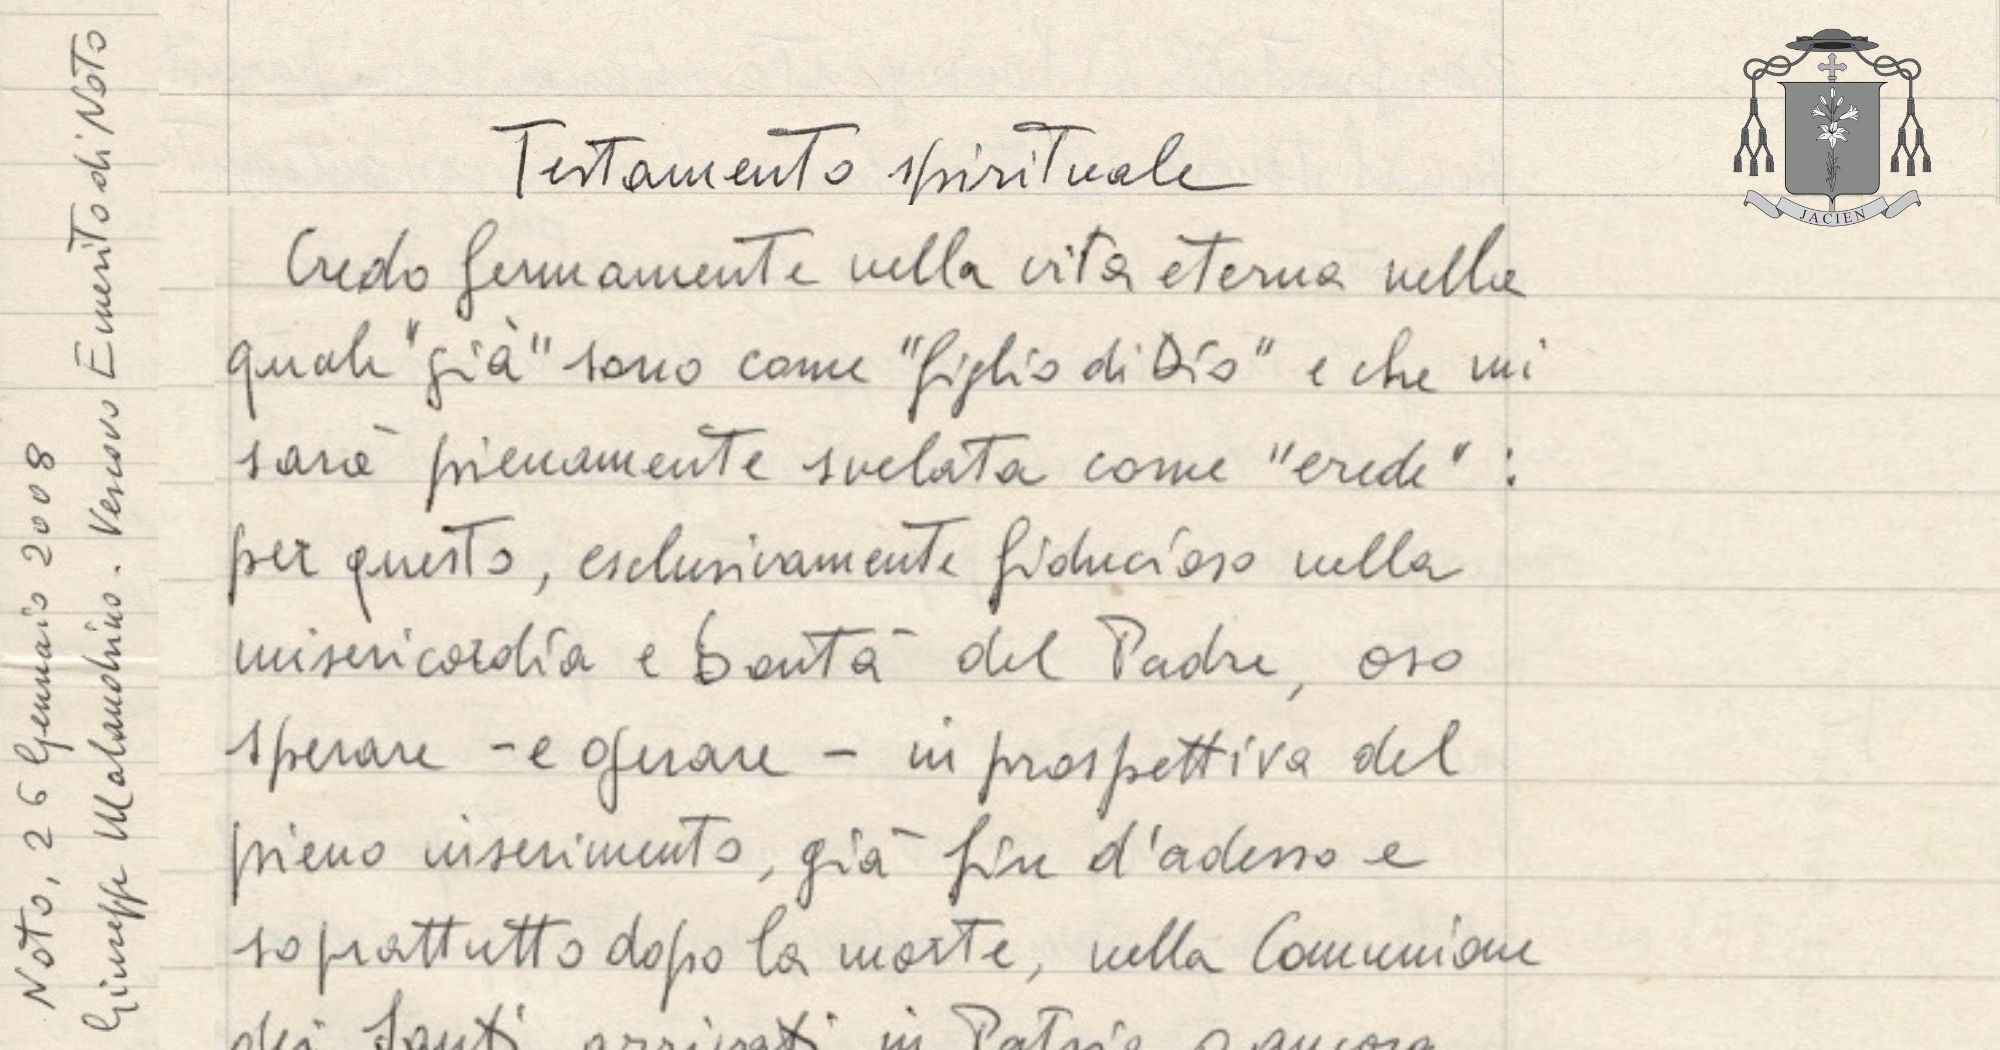 Testamento spirituale
Credo fermamente nella vita eterna nella
quale "già" sono come "figlio di Dio" e che mi
sarà pienamente svelata come "erede" :
per questo, esclusivamente fiducioso nella
misericordia e bontà del Padre, oso
sperare - e operare - in prospettiva del
pieno inserimento, già fin d'adesso e
soprattutto dopo la morte, nella Comunione
dei Santi arrivati in Patria o ancora
Noto, 26 Gennaio 2008
Giuseppe Malandrino. Vescovo Emerito di Noto
JACIEN